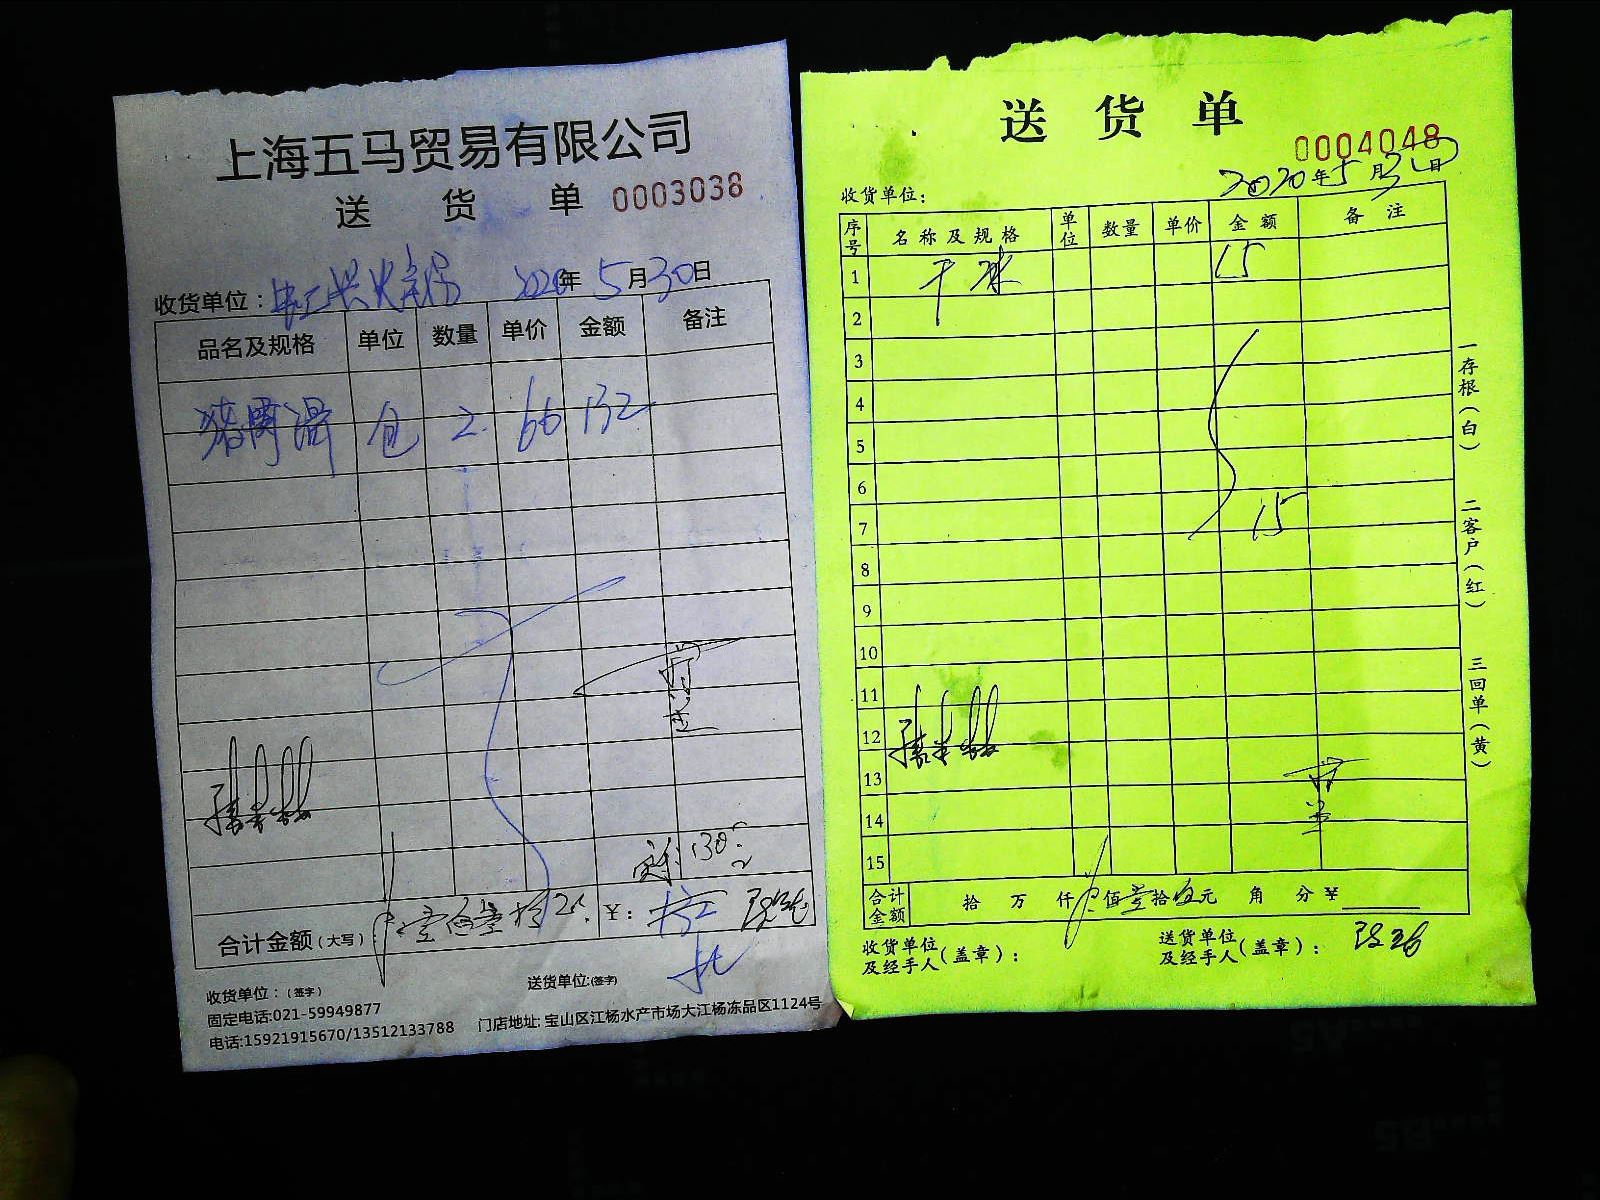 上海五马贸易有限公司
送 货 单 0003038
收货单位： 2020年5月30日
品名及规格 单位 数量 单价 金额 备注
2 66 132
130
合计金额（大写）： ￥：
收货单位：（签字） 送货单位:(签字)
固定电话:021-59949877
电话:15921915670/13512133788 门店地址: 宝山区江杨水产市场大江杨冻品区1124号
送 货 单
0004048
2020年5月30日
收货单位：
序号 名称及规格 单位 数量 单价 金额 备注
1 干冰 15
2
3
4
5
6
7 15
8
9
10
11
12
13
14
15
合计金额 拾 万 仟 佰壹拾伍元 角 分 ￥
收货单位及经手人(盖章)： 送货单位及经手人(盖章)：
一存根(白) 二客户(红) 三回单(黄)